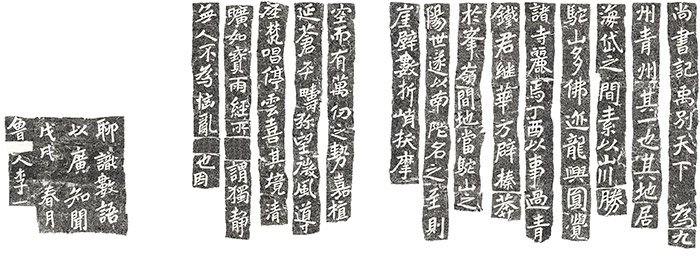 尚書記禹別天下爲九
州青州其一也其地居
海岱之間素以山川勝
駝山多佛迹龍興圓覺
諸寺麗焉丁酉以事過青
鐵君继華方辟榛莽
於峯嶺間地當駝山之
陽世遂以南陀名之至則
崖壁數折峭拔摩
空而有萬仞之勢嘉植
延蒼平疇弥望微風導
梵唱停雲喜其境清
曠如寳雨經所謂獨静
無人不為亂也因
聊識數語
以廣知聞
戊戌春月
魯人李一